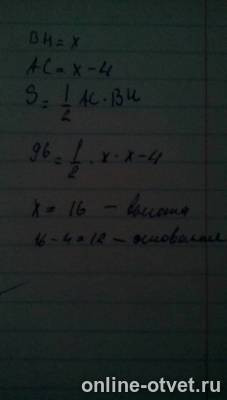 BH = x
AC = x - 4
S = 1/2 AC · BH
96 = 1/2 · x · x - 4
x = 16 - высота
16 - 4 = 12 - основание
online-otvet.ru